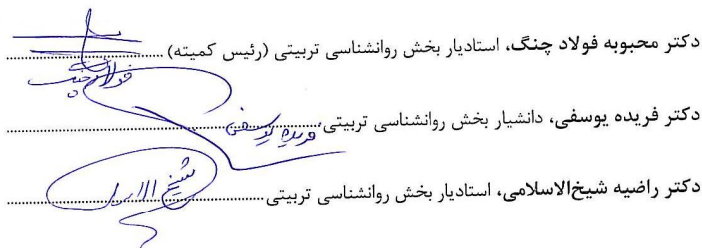 دکتر محبوبه فولاد چنگ، استادیار بخش روانشناسی تربیتی (رئیس کمیته) ........................
فولادچنگ
دکتر فریده یوسفی، دانشیار بخش روانشناسی تربیتی ........................
فریده یوسفی
دکتر راضیه شیخ‌الاسلامی، استادیار بخش روانشناسی تربیتی ........................